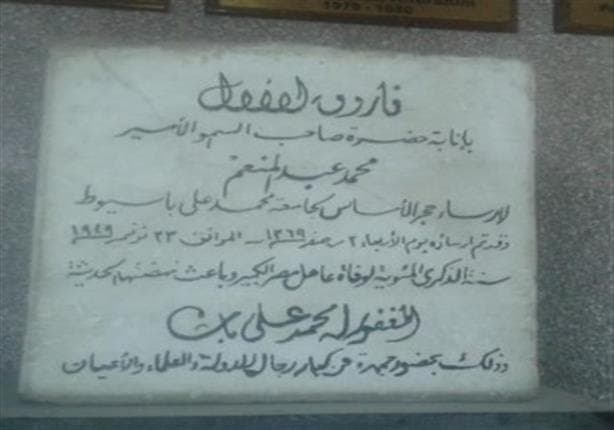 1979 - 1980
فاروق الأول
بإنابة حضرة صاحب السمو الأمير
محمد عبد المنعم
لإرساء حجر الأساس لجامعة محمد على بأسيوط
وقد تم إرساؤه يوم الأربعاء ٢ صفر ١٣٦٩ هـ الموافق ٢٣ نوفمبر ١٩٤٩
سنة الذكرى المئوية لوفاة عاهل مصر الكبير وباعث نهضتها الحديثة
المغفور له محمد على باشا
وذلك بحضور جمهرة من كبار رجال الدولة والعلماء والأعيان